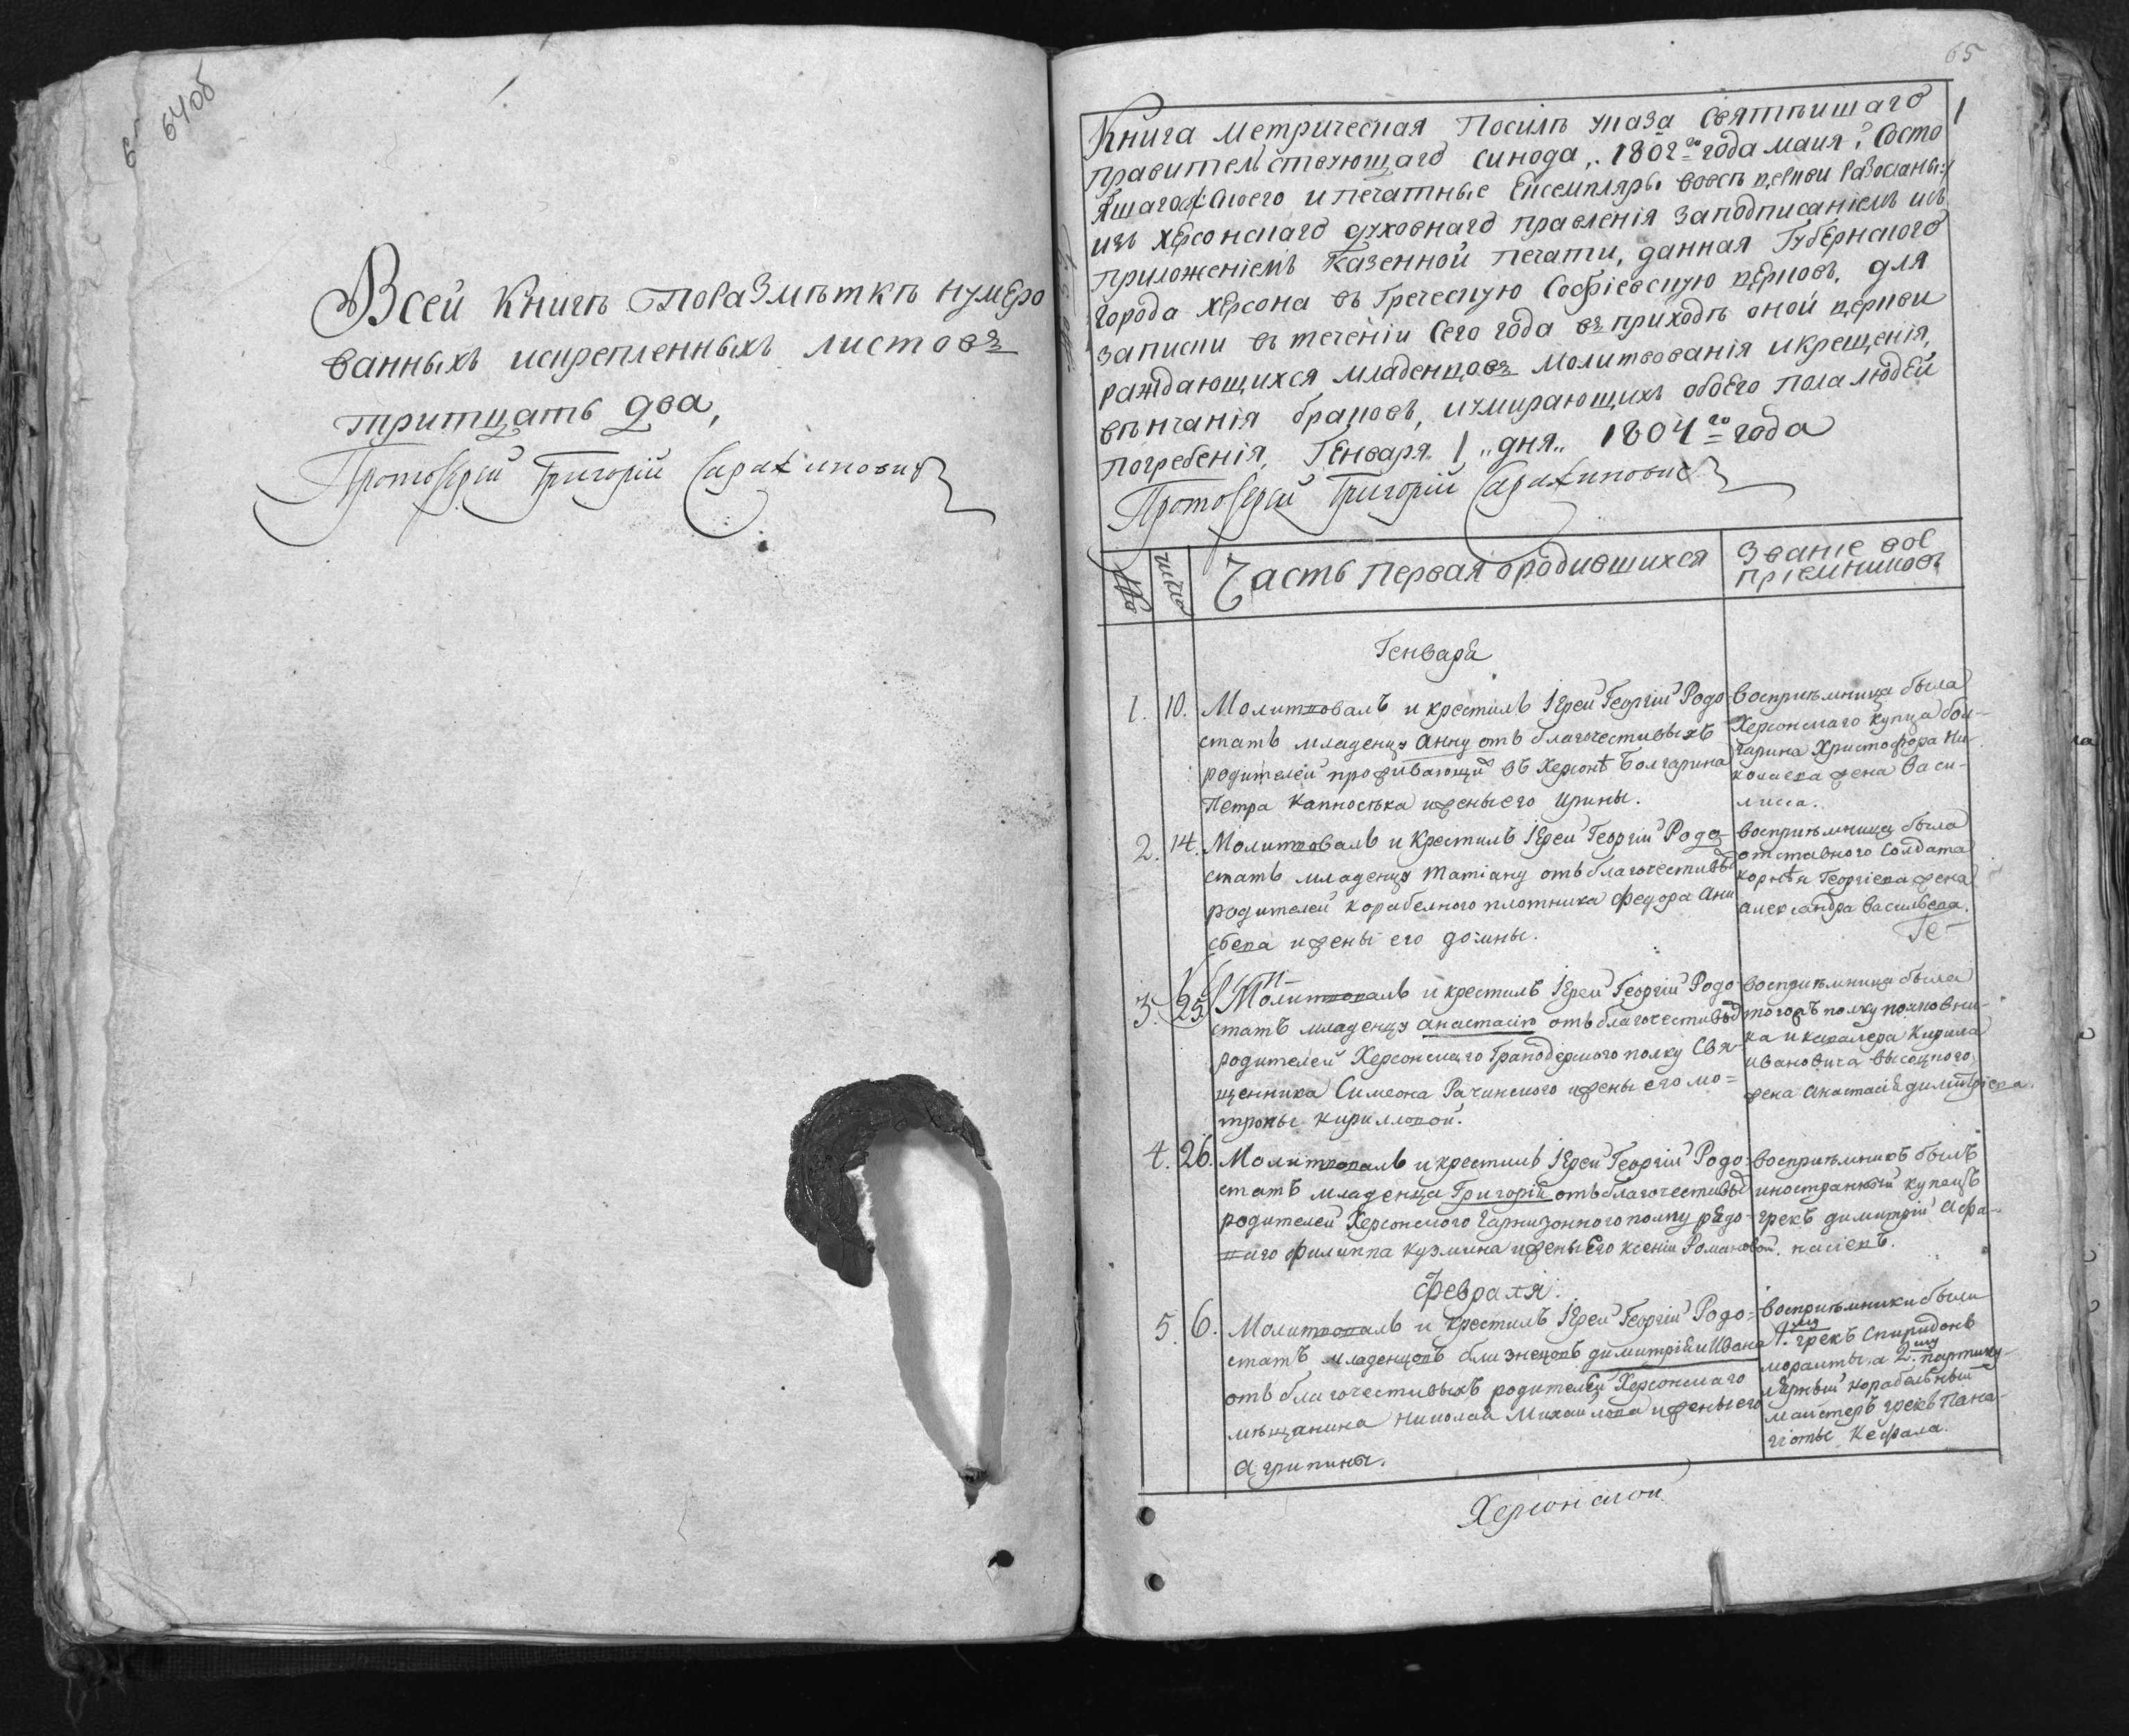 64об
Всей Книгѣ поразмѣткѣ нумеро
ванныхъ искрепленныхъ листовъ
тритцать два,
Протоіерей Григорій
65
1
Книга метрическая Посилѣ указа святѣишаго
правительствующаго синода, 1802го года маия, Состо
явшагося и печатные Екземпляры вовсѣ церкви Разосланы
изъ Херсонскаго духовнаго правленія заподписаніемъ исъ
приложеніемъ казенной печати, данная Губернского
города Херсона въ Греческую Софіевскую церковь, для
записки въ теченіи сего года въ приходѣ оной церкви
раждающихся младенцовъ молитвованія икрещенія,
вѣнчанія браковъ, иумирающихъ обоего пола людей
погребенія, Генваря 1 дня 1804го года
Протоіерей Григорій
число
Часть Первая ородившихся
Званіе вос
пріемниковъ
Генваря
1. 10. Молитвовалъ и крестилъ Іерей Георгій Родо
статъ младенца Анну отъ благочестивыхъ
родителей проживающий въ Херсонѣ Болгарина
Петра ижены его Ирины.
воспріѣмница была
Херсонскаго купца бол-
гарина Христофора Ни-
колаева жена Васи-
лисса.
2. 14. Молитвовалъ и Крестилъ Іерей Георгій Родо-
статъ младенца Татіану отъ благочестивыхъ
родителей корабелного плотника Федора
ижены его домны.
воспріѣмница была
отставного Солдата
корнѣя Георгіева жена
александра васильева.
Ге-
3. 25. Молитвовалъ и крестилъ Іерей Георгій Родо
статъ младенца анастасію отъ благочестивыхъ
родителей Херсонскаго Гранодерского полку Свя-
щенника Симеона Рачинского ижены его мо=
троны кирилловой.
воспріѣмница была
тогожъ полку полковни-
ка и кавалера Кирила
ивановича высоцкого
жена Анастасія димитріева.
4. 26. Молитвовалъ и крестилъ Іерей Георгій Родо-
статъ младенца Григорій отъ благочестивыхъ
родителей Херсонского Гарнизонного полку рядо-
ваго филиппа кузмина ижены Его ксеніи Романовой.
воспріѣмникъ былъ
иностранный купецъ
грекъ димитрій Афа-
насіевъ.
Февраля.
5. 6. Молитвовалъ и крестилъ Іерей Георгій Родо=
статъ младенцовъ близнецовъ димитрія и Ивана
отъ благочестивыхъ родителей Херсонскаго
мѣщанина Николая Михайлова ижены его
Агрипины.
воспріѣмники были
1. грекъ Спиридонъ
мораиты, а 2. партику-
лярный корабельный
мастеръ грекъ Пана-
гіоты Кефала.
Херсонской